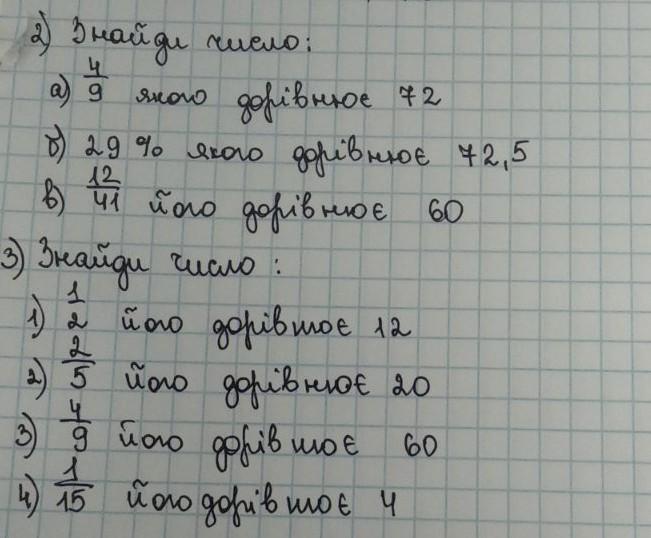 2) Знайди число:
а) 4/9 якого дорівнює 72
б) 29% якого дорівнює 72,5
в) 12/41 його дорівнює 60
3) Знайди число:
1) 1/2 його дорівнює 12
2) 2/5 його дорівнює 20
3) 4/9 його дорівнює 60
4) 1/15 його дорівнює 4